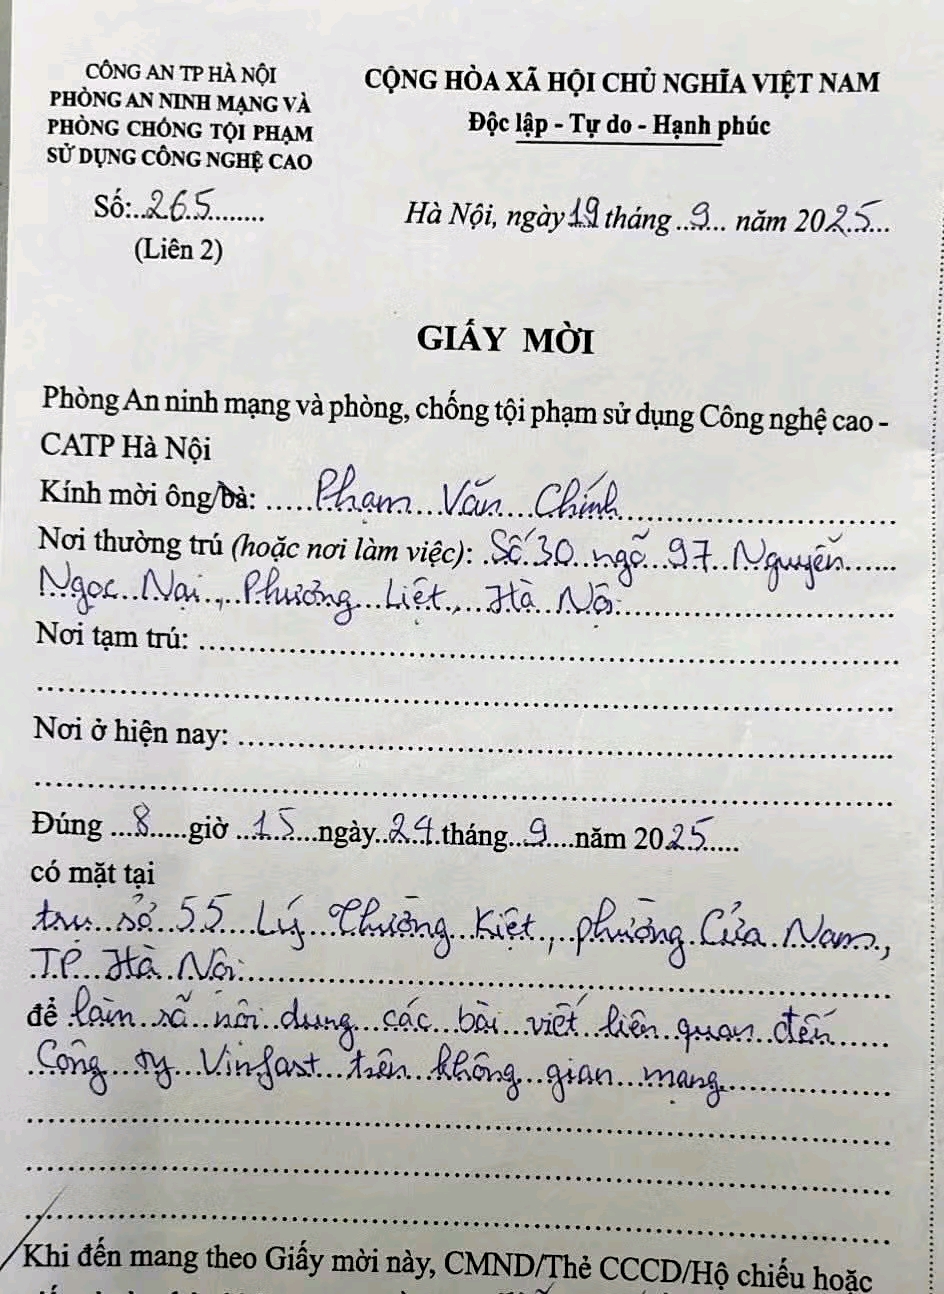 CÔNG AN TP HÀ NỘI
PHÒNG AN NINH MẠNG VÀ
PHÒNG CHỐNG TỘI PHẠM
SỬ DỤNG CÔNG NGHỆ CAO
Số:..265........
(Liên 2)
CỘNG HÒA XÃ HỘI CHỦ NGHĨA VIỆT NAM
Độc lập - Tự do - Hạnh phúc
Hà Nội, ngày 19 tháng ..9... năm 2025...
GIẤY MỜI
Phòng An ninh mạng và phòng, chống tội phạm sử dụng Công nghệ cao -
CATP Hà Nội
Kính mời ông/bà: .....Phạm...Văn...Chính..............................
Nơi thường trú (hoặc nơi làm việc): Số 30 ngõ 97 Nguyễn......
Ngọc Nại, Phương Liệt, Hà Nội..............................
Nơi tạm trú: ............................................................
............................................................
Nơi ở hiện nay: ............................................................
............................................................
Đúng ...8.....giờ ..15...ngày..24.tháng..9....năm 2025.....
có mặt tại
trụ sở 55 Lý Thường Kiệt, phường Cửa Nam,
TP Hà Nội............................................................
để làm rõ nội dung các bài viết liên quan đến......
Công ty Vinfast trên không gian mạng..................
............................................................
............................................................
............................................................
Khi đến mang theo Giấy mời này, CMND/Thẻ CCCD/Hộ chiếu hoặc